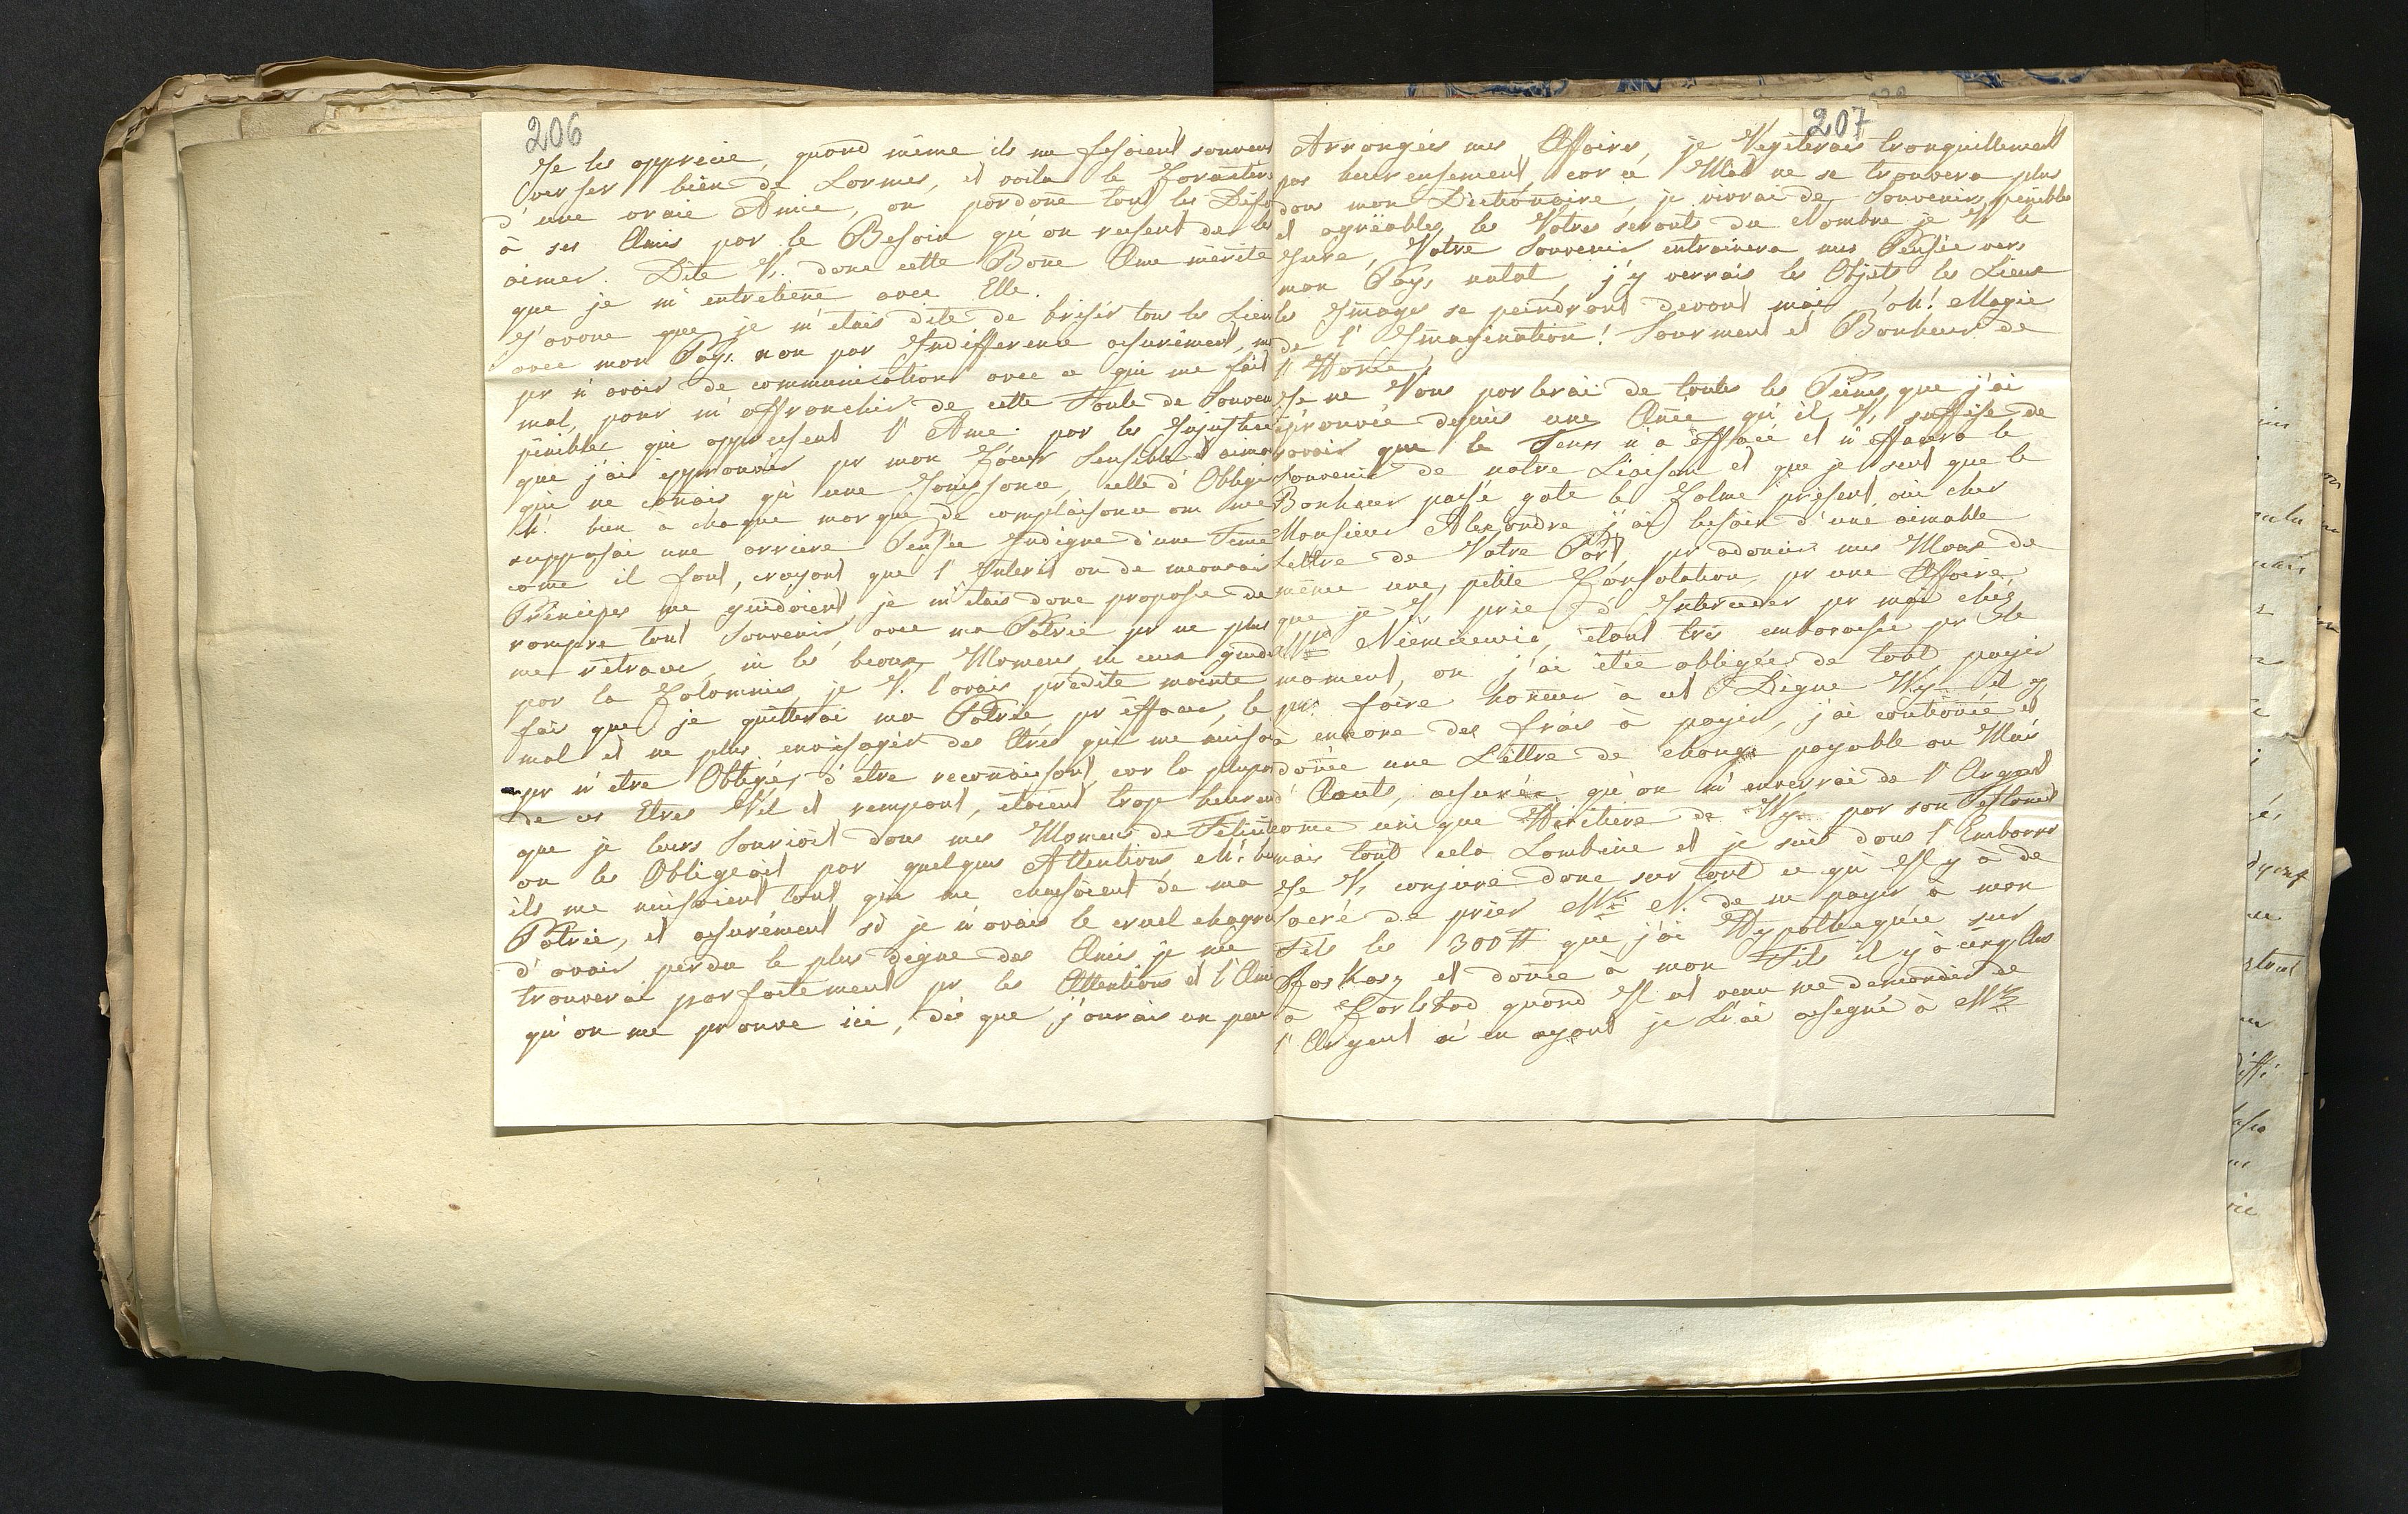 206
Je les apprecie, quand même ils me fesoient souvent
verser bien de Larmes, et voila le Caracter
d'une vraie Amie, on pardone tout les Defo
à ses Amis par le Besoin qu'on resent de les
aimer. Dite V. donc cette Bone Ame mérite
que je m'entretiene avec Elle.
J'avoue que je m'etois dite de briser tous les Lien
avec mon Pays non par Indifference assurément, m
pr n'avoir de communication avec ce qui me fait
mal, pour m'affranchir de cette Foule de Souven
pénibles qui oppressent l'Ame par les Injustice
que j'ais epprouvés pr mon Coeur Sensible et aima
qui ne conais qu'une Jouissance, celle d'Oblige
h! bien a chaque marque de complaisance on me
supposai une arriere Pensée Indigne d'une Feme
come il faut, croyant que l'Interit ou de meauvais
Principes me guidoient, je m'etais donc proposée de
rompre tout Souvenir, avec ma Patrie pr ne plus
me retracer, ni les beaux Momens, ni ceux
par la Calomnie, je V. l'avais predite mainte
fois que je quitterai ma Patrie, pr effacer, le
mal et ne plus envisager des Etres qui me nuiso
pr m'etre Obligés, d'etre reconaissant, car la plupar
de ces Etres Vil et rempant, etoient trop heureu
que je leurs Souriois dans mes Momens de Felicité
ou les Obligeoit par quelques Attentions, eh! bi
ils me nuisoient tant, qui me chassoient de ma
Patrie, et assurément si je n'avois le cruel chagri
d'avoir perdu le plus digne des Amis je me
trouverai parfaitement pr les Attentions et l'Ami
qu'on me prouve ici, dès que j'aurais un peu
207
Arrangées mes Affaires, je Vegeterais tranquillement
pas heureusement, car ce Mot ne se trouvera plus
dans mon Dictionaire, je vivrai de Souvenirs pénibles
et agréables, les Votres seronts du Nombre je V. le
Jure, Votre Souvenir entrainera mes Pensée vers
mon Pays natal, j'y verrais les Objets les Lieux
les Images se peindront devant mois, oh! Magie
de l'Imagination! Tourment et Bonheur de
l'Home!
Je ne Vous parlerai de toutes les Peines, que j'ai
éprouvée depuis une Anée qu'il V. suffise de
savoir que le Tems n'a effacé et n'effacera le
Souvenir de notre Liaison et que je sent que le
Bonheur passé gate le Calme présent, oui cher
Monsieur Alexandre j'ai besoin d'une aimable
Lettre de Votre Part, pr adoucir mes Maux de
même une, petite Consolation pr une Affaire
que je V. prie d'Interceder pr moi chéz
Mr Niemcewic, étant très embarassée pr le
moment, ou j'ai étée obligée de tout payer
pr faire honeur à cet Digne Wy. il y
à encore des frais à payer, j'ai contionée et
donée une Lettre de change payable au Mois
d'Aouts, assurée qu'on m'enverrai de l'Argent
come unique Heritiere de Wy. par son Testament
mais tout cela Lambine et je suis dans l'Embarras
Je V. conjure donc sur tout ce qu'Il y à de
sacré de prier Mr N. de me payer à mon
Fils les 300 # que j'ai Hypothequée sur
Foskosz et donée à mon Fils il y à cinq Ans
a Carlsbad quand Il est venu me demander de
l'Argent n'en ayant je L'ai assigné à Mr